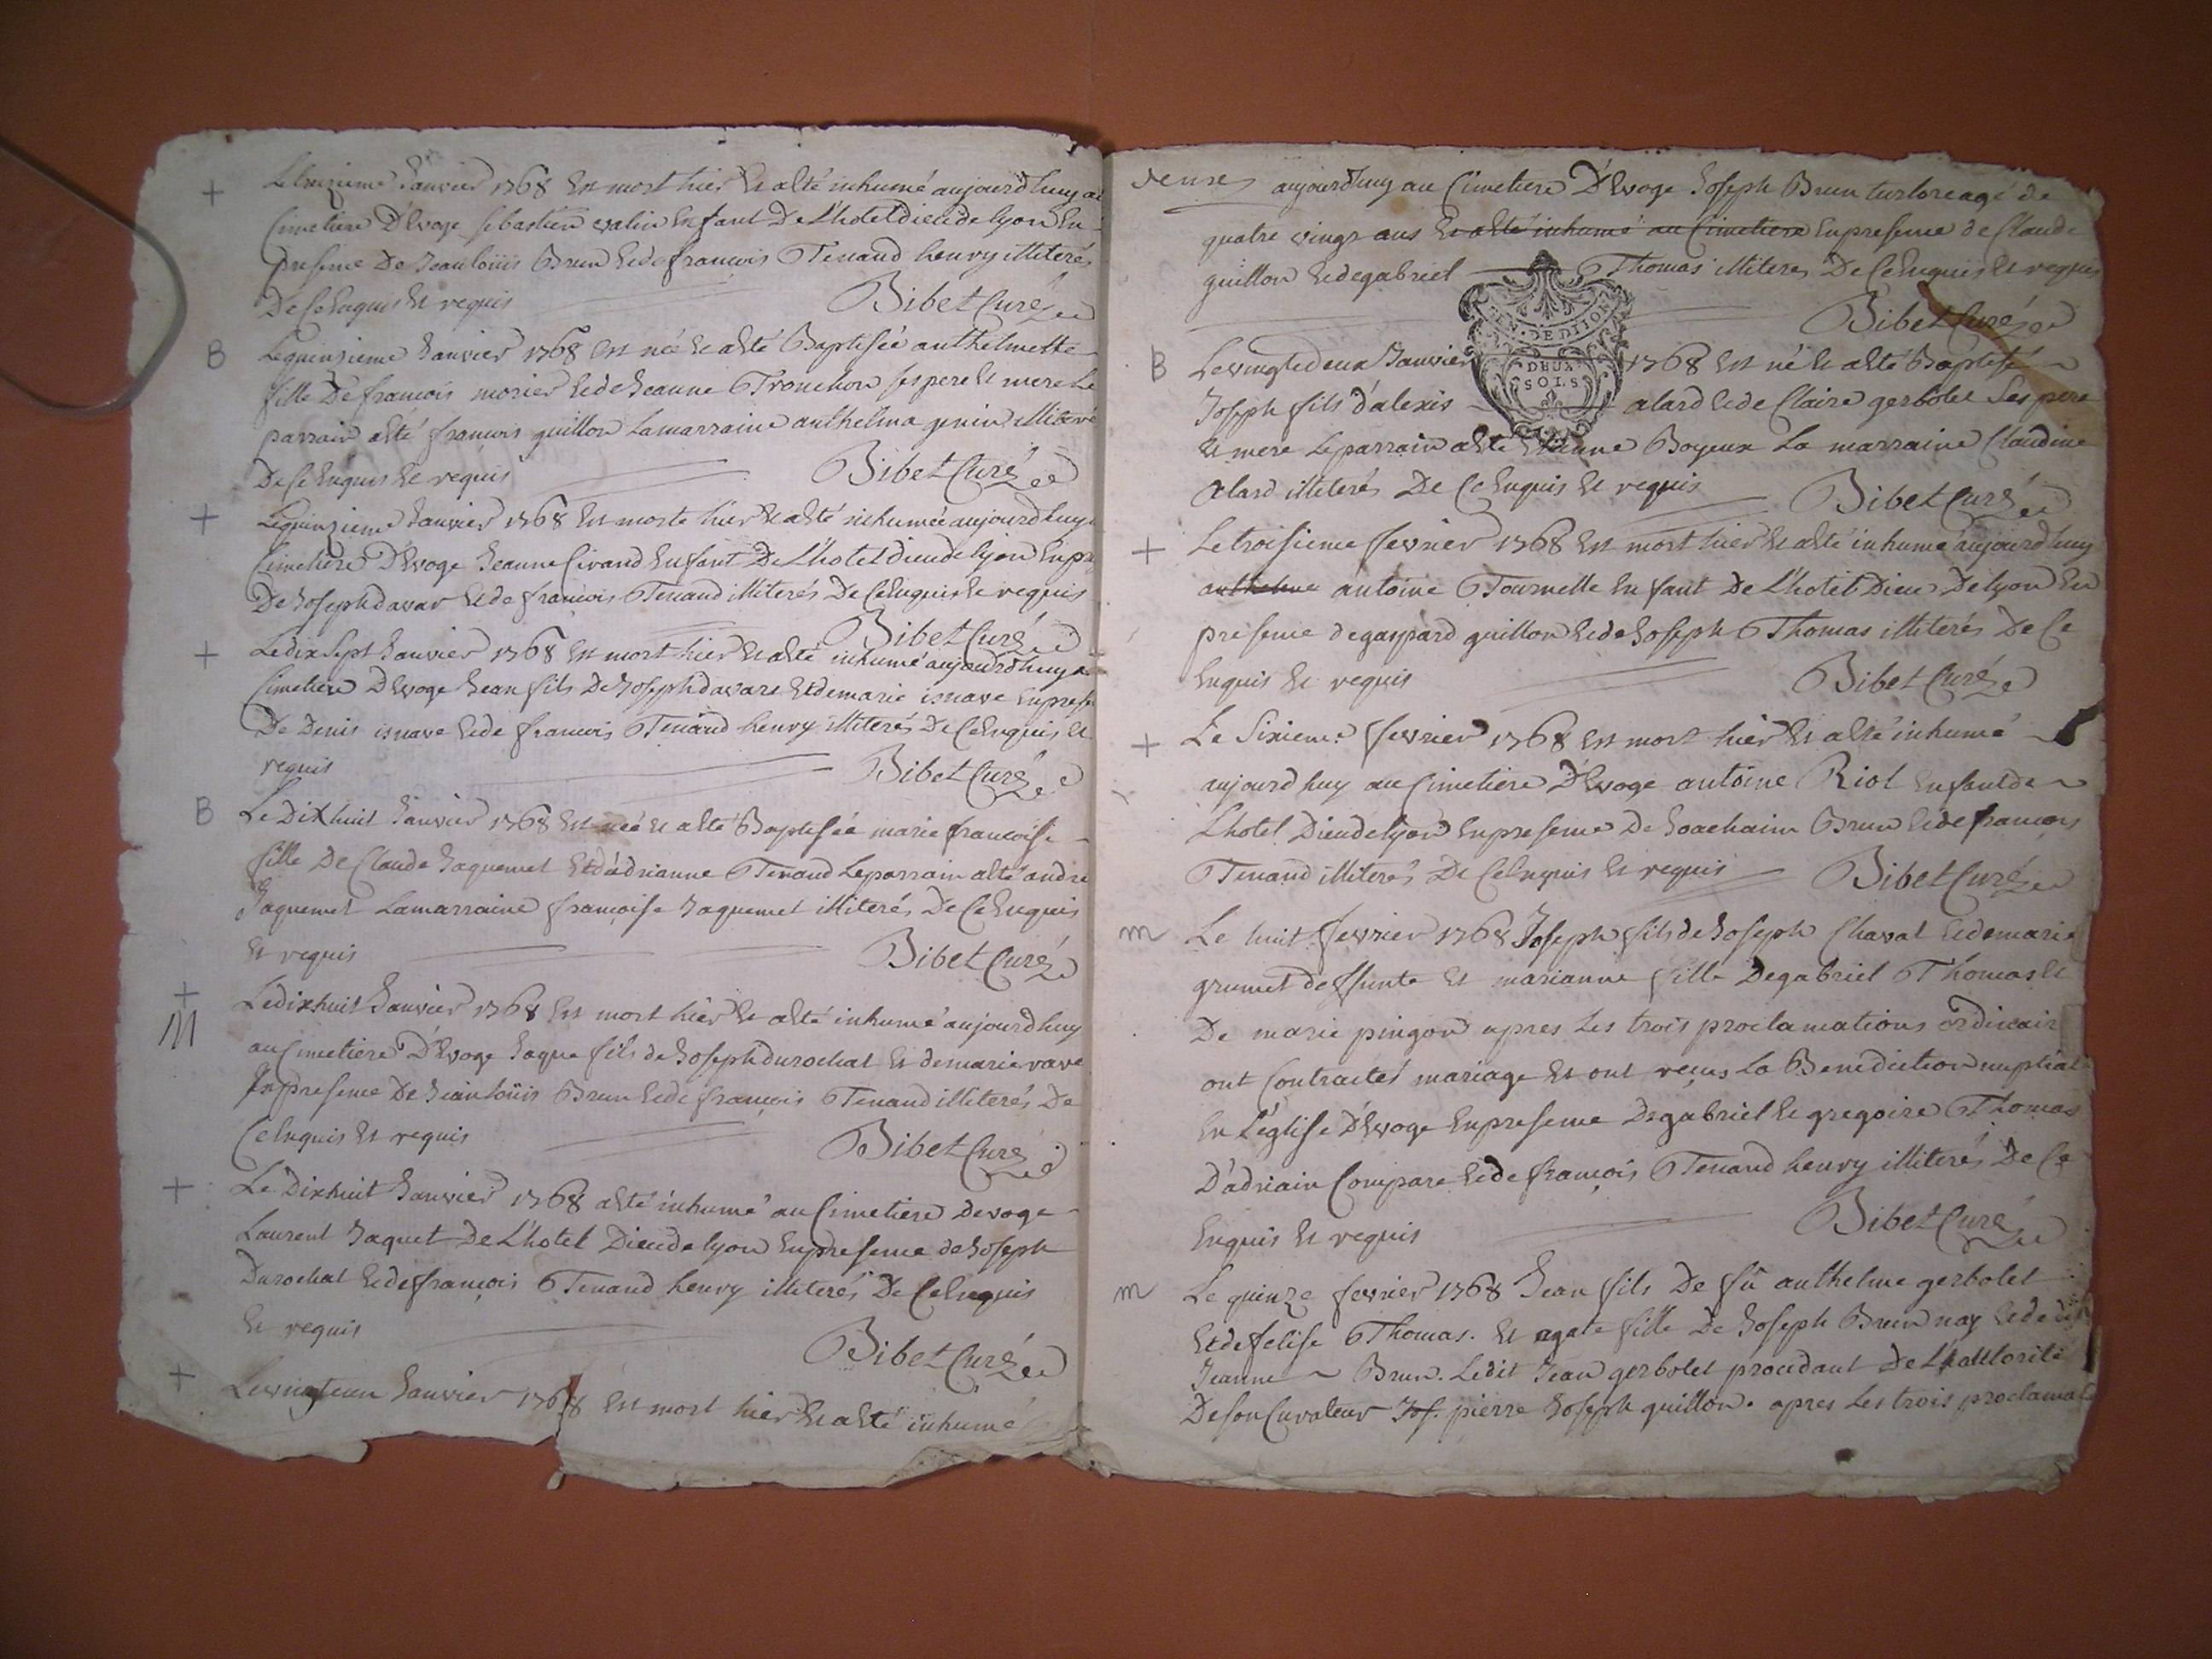 + Le treizieme Janvier 1768 Est mort hier Et a Eté inhumé aujourdhuy au
Cimetiere D'Evoge sebastien valin Enfant De L'hotel dieu de lyon En
presense De Jean loüis Brun Et de francois Tenand henry illiterés
De Ce Enquis Et requis Bibet Curé
B Le quinzieme Janvier 1768 Est née Et a Eté Baptisée anthelmette
fille De francois morier Et de Jeanne Tronchon ses pere Et mere Le
parrain a Eté francois guillon La marraine anthelma genin illiteré
De Ce Enquis Et requis Bibet Curé
+ Le quinzieme Janvier 1768 Est morte hier Et a Eté inhumée aujourdhuy
Cimetiere D'Evoge Jeanne Civand Enfant De L'hotel dieu de lyon En pre
De Joseph davar Et de francois Tenand illiterés De Ce Enquis Et requis
Bibet Curé
+ Le dix Sept Janvier 1768 Est mort hier Et a Eté inhumé aujourdhuy a
Cimetiere D'Evoge Jean fils De Joseph davare Et de marie isnave En prese
De Denis isnave Et de francois Tenand henry illiterés De Ce Enquis Et
requis Bibet Curé
B Le Dix huit Janvier 1768 Est née Et a Eté Baptisée marie francoise
fille De Claude Jaquemet Et d'adrianne Tenand Le parrain a Eté andré
Jaquemet La marraine françoise Jaquemet illiterés De Ce Enquis
Et requis Bibet Curé
+ M Le dix huit Janvier 1768 Est mort hier Et a Eté inhumé aujourdhuy
au Cimetiere D'Evoge Jaque fils de Joseph durochat Et de marie rave
En presense De Jean loüis Brun Et de françois Tenand illiterés De
Ce Enquis Et requis Bibet Curé
+ Le Dix huit Janvier 1768 a Eté inhumé au Cimetiere devoge
Laurent Jaquet De L'hotel Dieu de lyon En presense de Joseph
Durochat Et de françois Tenand henry illiterés De Ce Enquis
Et requis Bibet Curé
+ Le vingt un Janvier 1768 Est mort hier Et a Eté inhumé
aujourdhuy au Cimetiere D'Evoge Joseph Brun agé de
quatre vingt ans Et a Eté inhumé au Cimetiere En presense de Claude
guillon Et de gabriel Thomas illiteres De Ce Enquis Et requis
Bibet Curé
GEN. DE DIJON
DEUX
SOLS
B Le vingt deux Janvier 1768 Est né Et a Eté Baptisé
Joseph fils d'alexis alard Et de Claire gerbolet Ses pere
Et mere Le parrain a Eté Etienne Boyeux La marraine Claudine
alard illiterés De Ce Enquis Et requis Bibet Curé
+ Le troisieme fevrier 1768 Est mort hier Et a Eté inhumé aujourdhuy
anthelme antoine Tournelle Enfant De L'hotel Dieu De lyon En
presense de gaspard guillon Et de Joseph Thomas illiterés De Ce
Enquis Et requis Bibet Curé
+ Le Sixieme fevrier 1768 Est mort hier Et a Eté inhumé
aujourdhuy au Cimetiere D'Evoge antoine Riol Enfant de
L'hotel Dieu de lyon En presense De Joachaim Brun Et de françois
Tenand illiterés De Ce Enquis Et requis Bibet Curé
m Le huit fevrier 1768 Joseph fils de Joseph Chaval Et de marie
grumet deffunte Et marianne fille De gabriel Thomas Et
De marie pingon apres Les trois proclamations ordinair
ont Contractés mariage Et ont reçus La Benediction nuptial
En L'église D'Evoge En presense De gabriel Et gregoire Thomas
D'adriain Compare Et de françois Tenand henry illiterés De Ce
Enquis Et requis Bibet Curé
m Le quinze fevrier 1768 Jean fils De fû anthelme gerbolet
Et de felise Thomas. Et agate fille De Joseph Brun nay Et de
Jeanne Brun. Ledit Jean gerbolet procedant De L'authorité
De son Curateur Jos. pierre Joseph guillon. apres Les trois proclamat